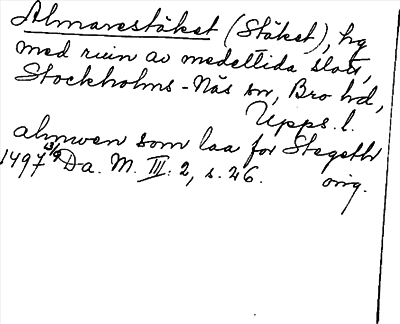 Almarestäket (Stäket), hg
med ruin av medeltida slott,
Stockholms-Näs sn, Bro hd,
Upps. l.
almwen som laa for Stegeth
1497 13/9 Da. M. III: 2, s. 26. orig.